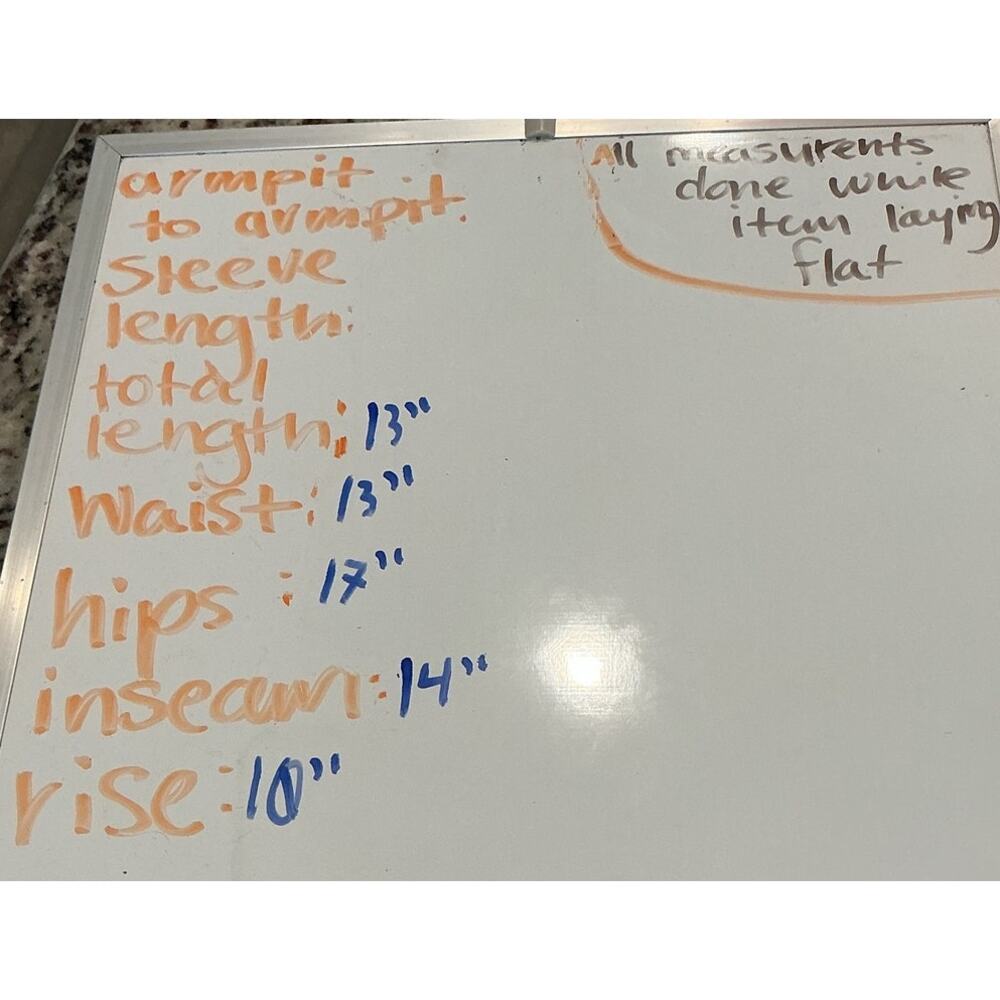 armpit
to armpit.
sleeve
length:
total
length: 13"
Waist: 13"
hips : 17"
inseam: 14"
rise: 10"
All measurents
done while
item laying
flat